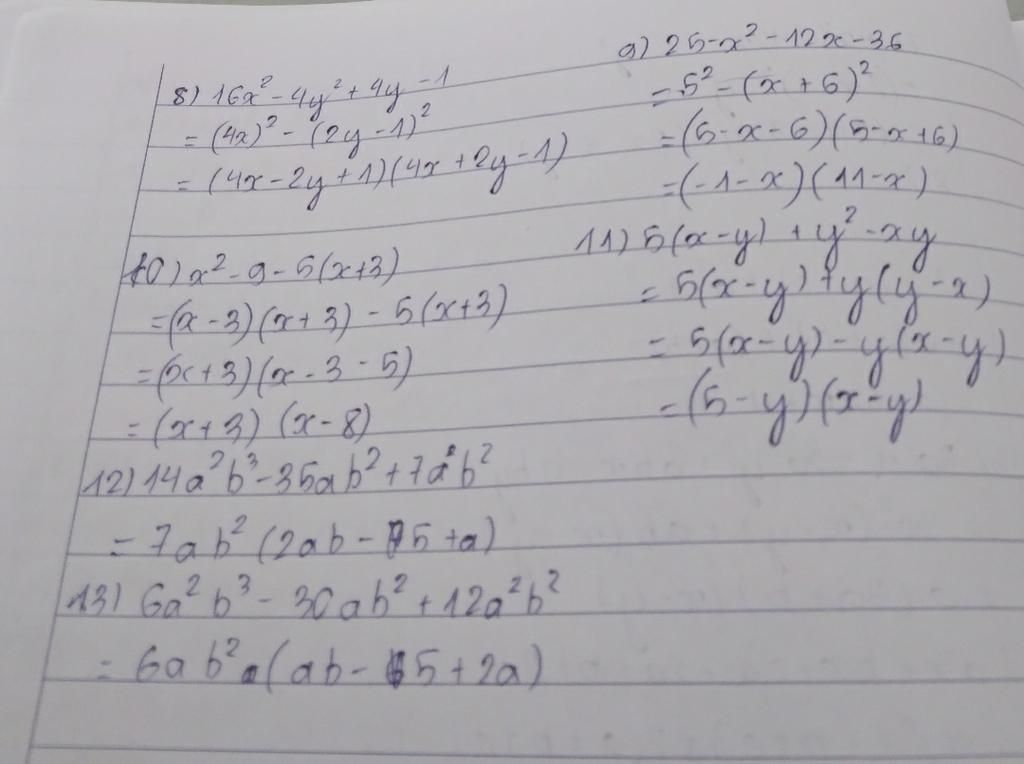 8) 16x² - 4y² + 4y - 1
= (4x)² - (2y - 1)²
= (4x - 2y + 1)(4x + 2y - 1)
9) 25 - x² - 12x - 36
= 5² - (x + 6)²
= (5 - x - 6)(5 - x + 6)
= (-1 - x)(11 - x)
10) x² - 9 - 5(x+3)
= (x - 3)(x + 3) - 5(x+3)
= (x+3)(x - 3 - 5)
= (x+3) (x - 8)
11) 5(x - y) + y² - xy
= 5(x - y) + y(y - x)
= 5(x - y) - y(x - y)
= (5 - y)(x - y)
12) 14a²b³ - 35ab² + 7a²b²
= 7ab² (2ab - 5 + a)
13) 6a²b³ - 30ab² + 12a²b²
= 6ab² . (ab - 5 + 2a)